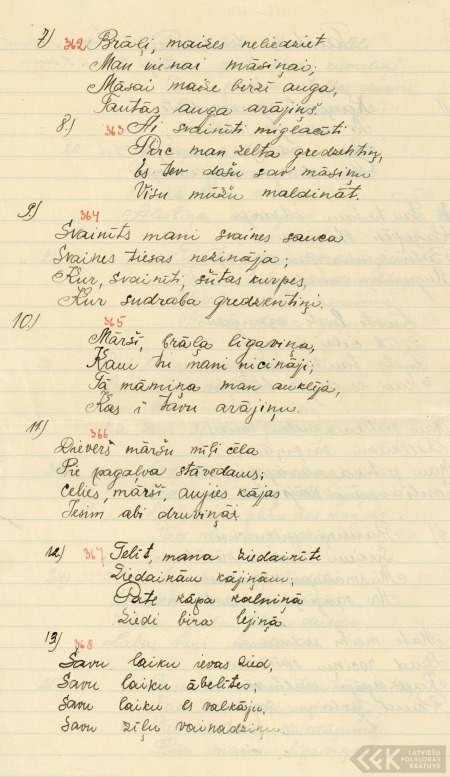 7) 362 Brāļi, maizes neliedziet
Man vienai māsiņai;
Māsai maize birzī auga,
Tautās auga arājiņš.
8.) 363 Ai svainīti miglacīti
Pērc man zelta gredzentiņ,
Es tev došu sav māsiņu
Visu mūžu maldināt.
9) 364
Svainīts mani svaines sauca
Svaines tiesas nezināja;
Kur, svainīti, sūtas kurpes,
Kur sudraba gredzentiņi.
10.) 365
Mārši, brāļa līgaviņa,
Kam tu mani nicināji;
Tā māmiņa man auklēja,
Kas i tavu arājiņu.
11) 366
Dievers māršu mīļi cēla
Pie pagaļva stāvedams;
Celies, mārši, aujies kājas
Iesim abi druviņāi
12) 367 Telīt, mana ziedainīte
Ziedainām kājiņām;
Pate kāpa kalniņā
Ziedi bira lejiņā.
13) 368
Savu laiku ievas zied,
Savu laiku ābelītes;
Savu laiku es valkāju,
Savu zīļu vainadziņu.
LATVIEŠU
FOLKLORAS
KRĀTUVE